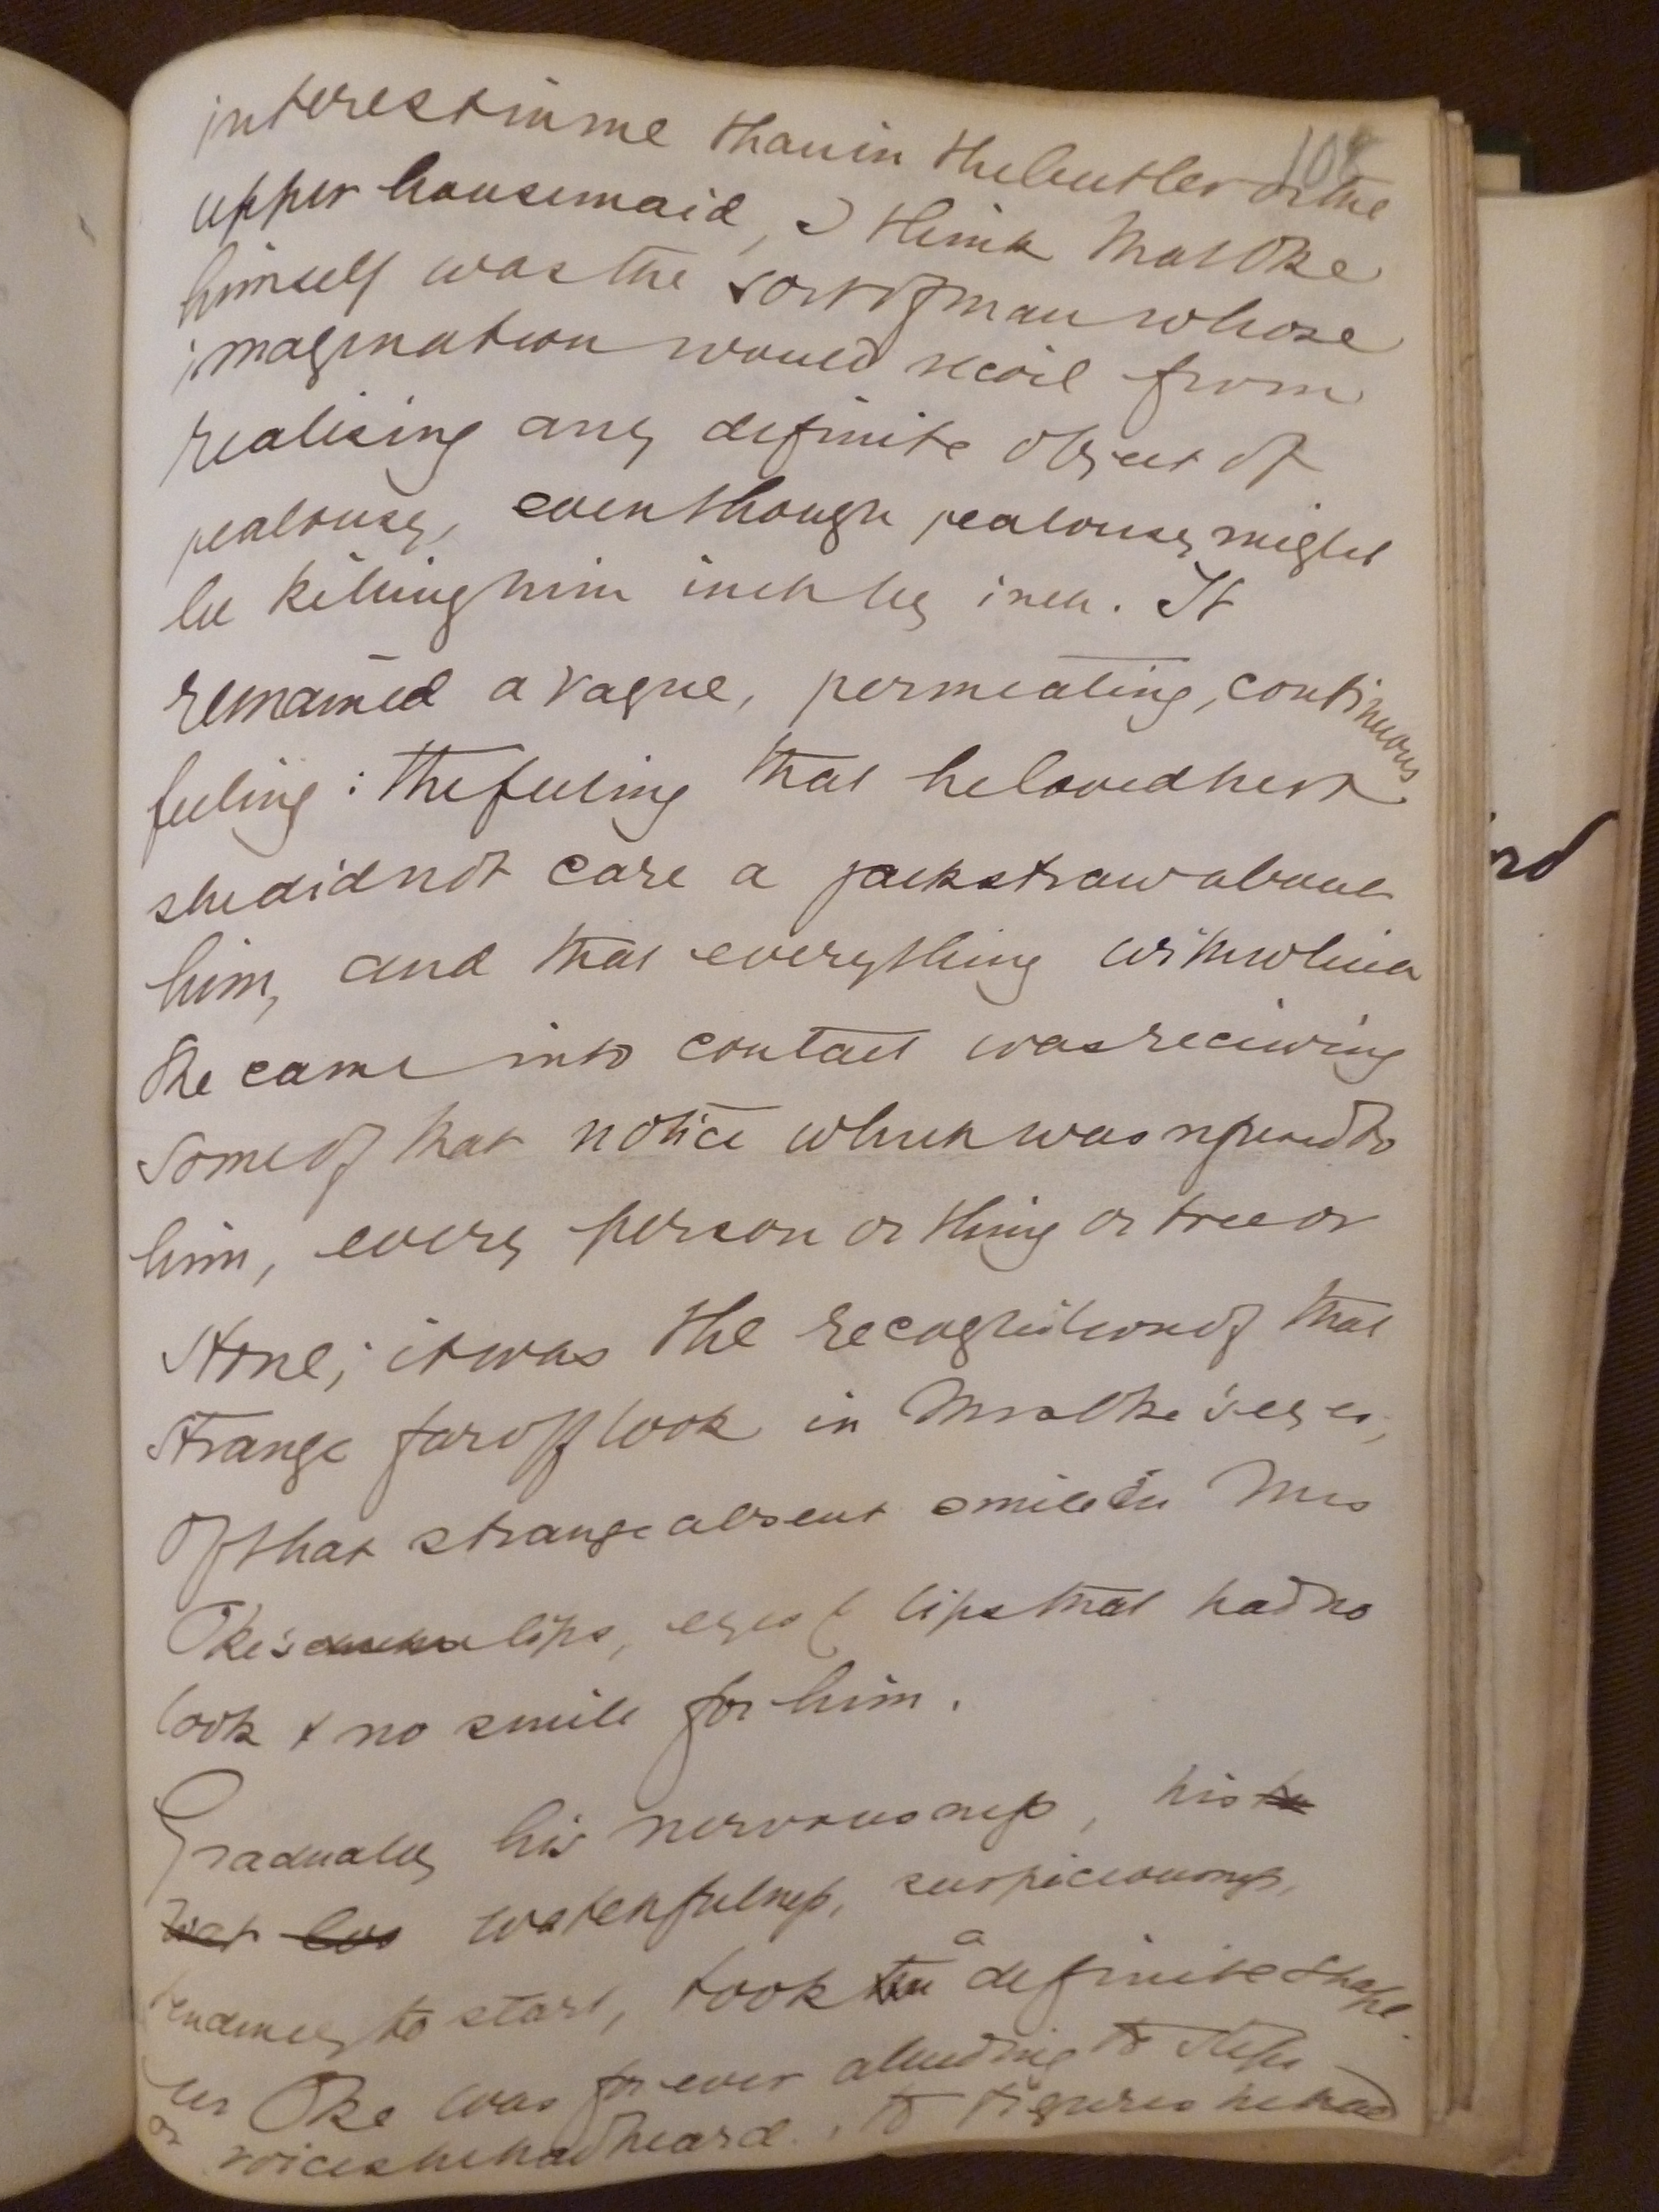 108
interest in me than in the butler or the
upper housemaid, I think that Oke
himself was the sort of man whose
imagination would recoil from
realising any definite object of
jealousy, even though jealousy might
be killing him inch by inch. It
remained a vague, permeating, continuous
feeling: the feeling that he loved her &
she did not care a jackstraw about
him, and that everything with which
she came into contact was receiving
some of that notice which was refused to
him, every person or thing or tree or
stone; it was the recognition of that
strange far off look in Mrs Oke's eyes,
of that strange absent smile in Mrs
Oke's lips, eyes & lips that had no
look & no smile for him.
Gradually his nervousness, his
watchfulness, suspiciousness,
tendency to start, took a definite shape.
Mr Oke was for ever alluding to steps
or voices he had heard, to figures he had
rd